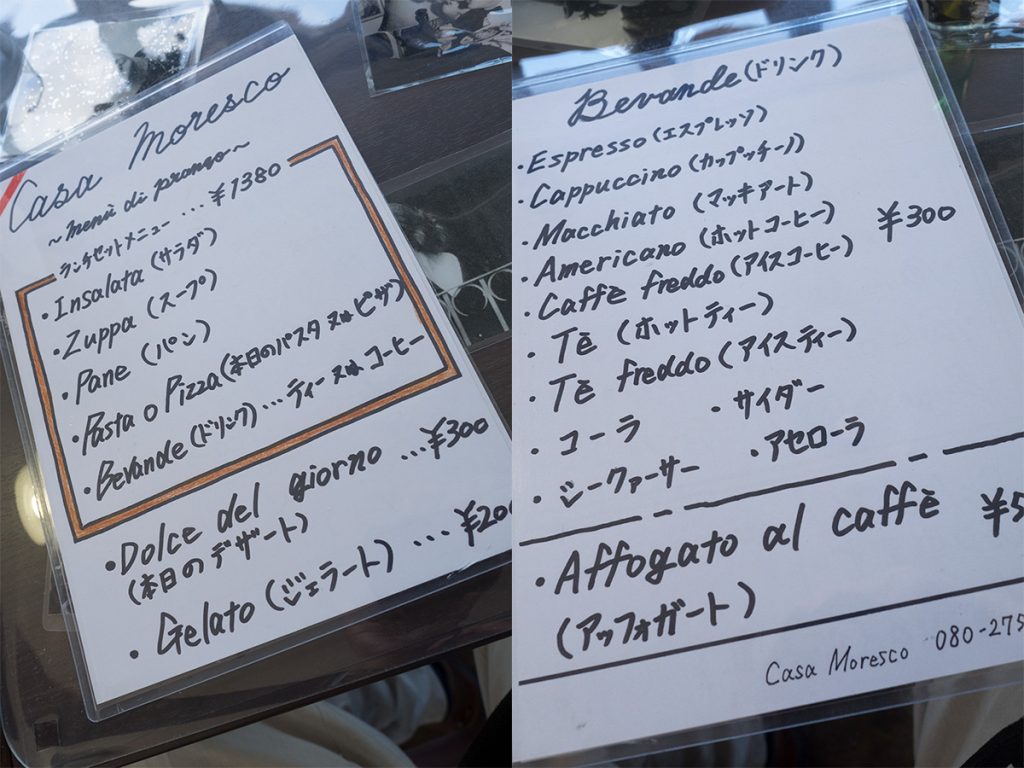 Casa Moresco
～menù di pranzo～
ランチセットメニュー…¥1380
・Insalata (サラダ)
・Zuppa (スープ)
・Pane (パン)
・Pasta o Pizza (本日のパスタ又はピザ)
・Bevande (ドリンク)…ティー又はコーヒー
・Dolce del giorno …¥300
(本日のデザート)
・Gelato (ジェラート) …¥200
Bevande (ドリンク)
・Espresso (エスプレッソ)
・Cappuccino (カップッチーノ)
・Macchiato (マッキアート)
・Americano (ホットコーヒー) ¥300
・Caffè freddo (アイスコーヒー)
・Tè (ホットティー)
・Tè freddo (アイスティー)
・コーラ ・サイダー
・シークァーサー ・アセローラ
・Affogato al caffè ¥5
(アッフォガート)
Casa Moresco 080-275